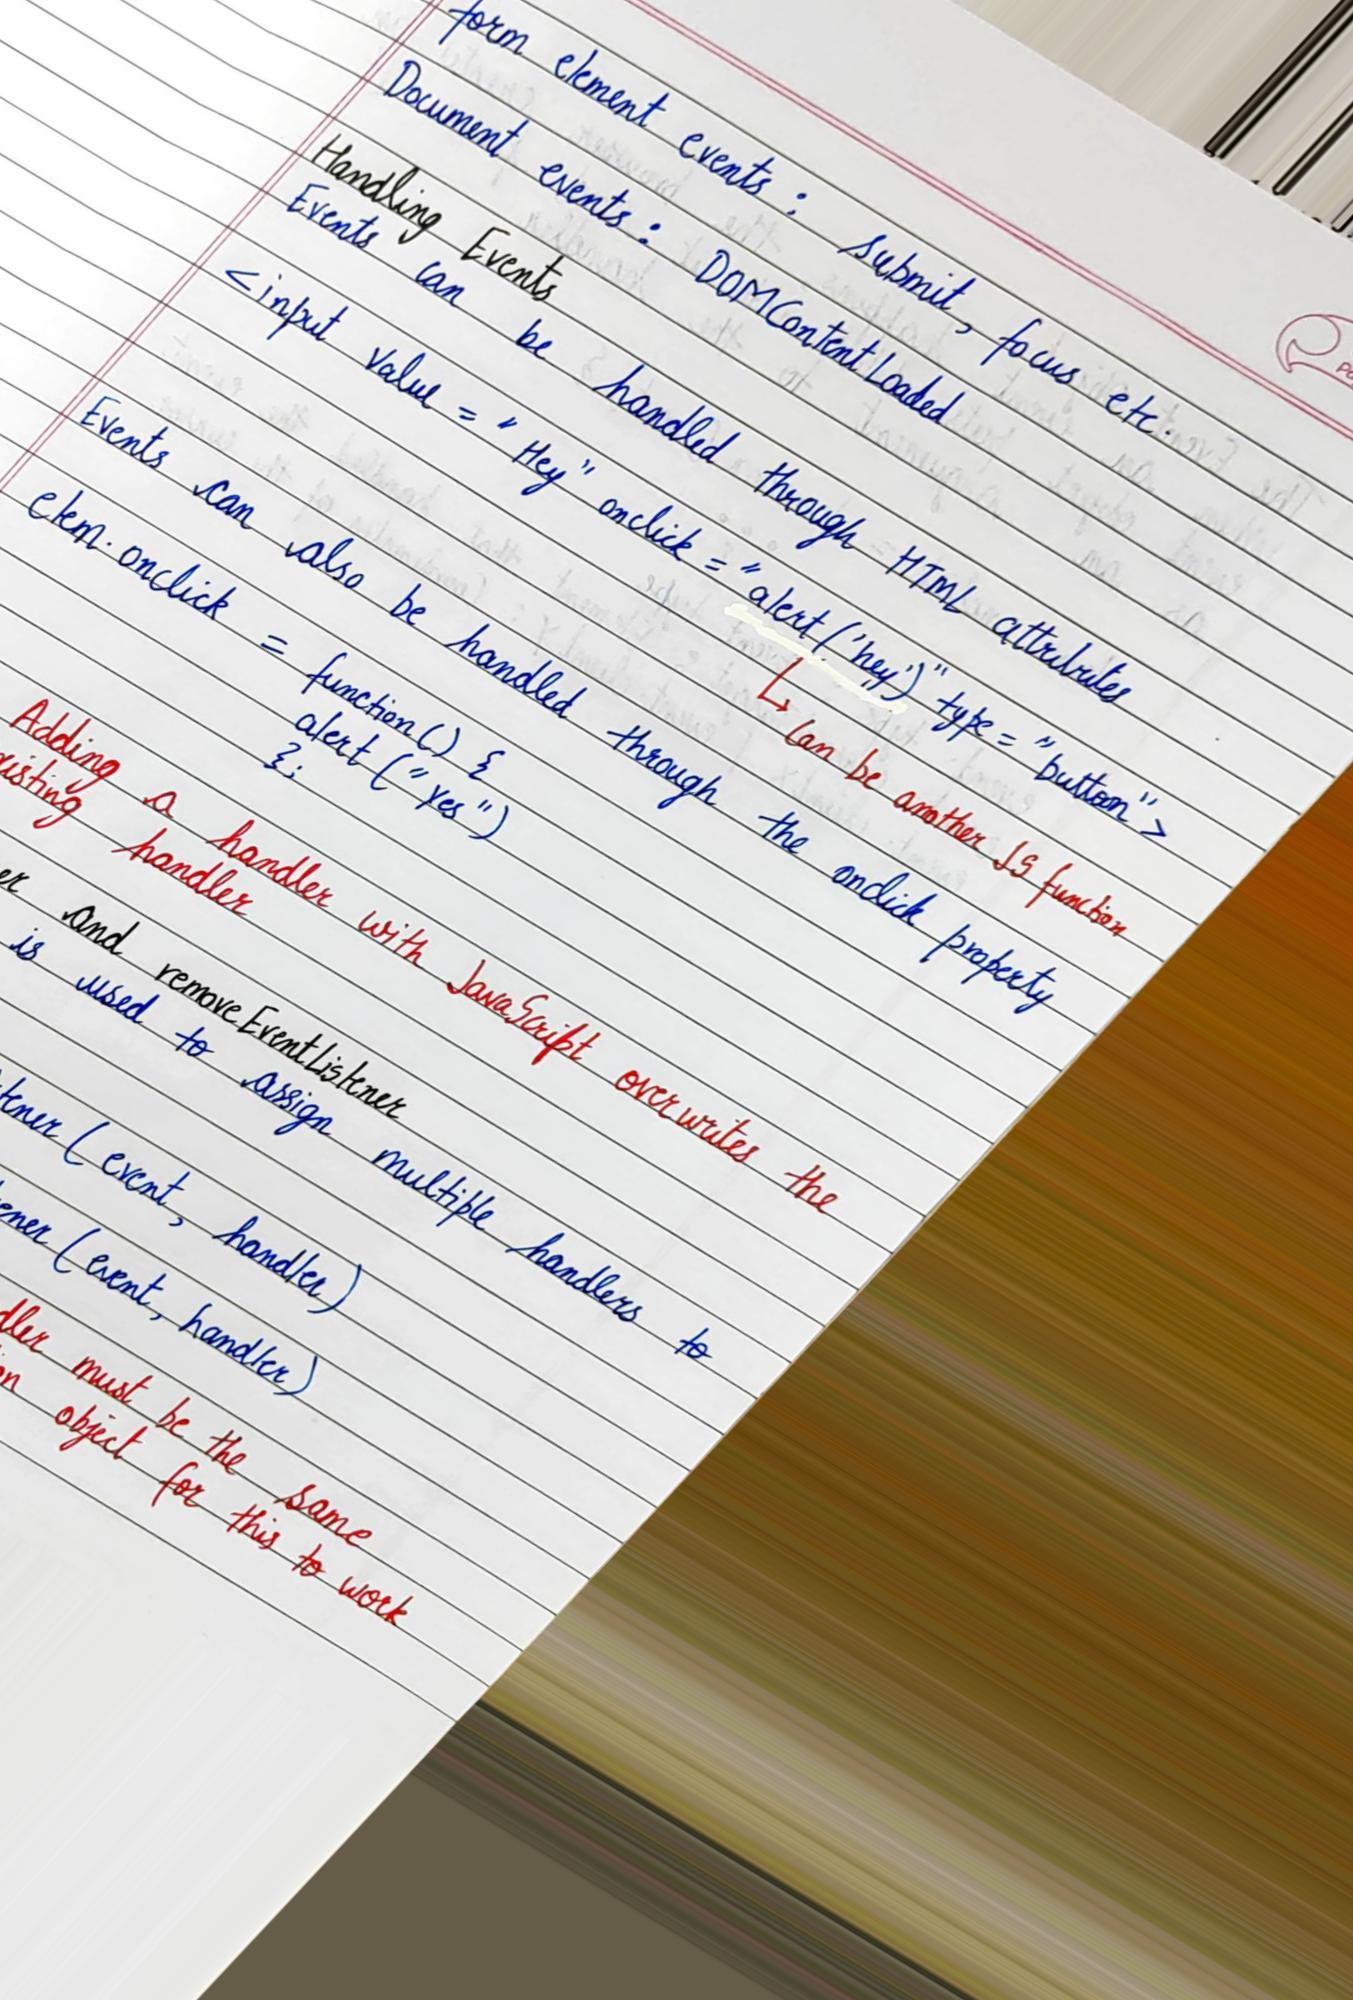 form element events : submit, focus etc.
Document events : DOMContentLoaded
Handling Events
Events can be handled through HTML attributes
<input value = "Hey" onclick = "alert('hey')" type = "button">
↳ can be another JS function
Events can also be handled through the onclick property
elem.onclick = function() {
alert ("Yes")
};
Adding a handler with JavaScript overwrites the
handler
and removeEventListener
is used to assign multiple handlers to
(event, handler)
(event, handler)
must be the same
object for this to work